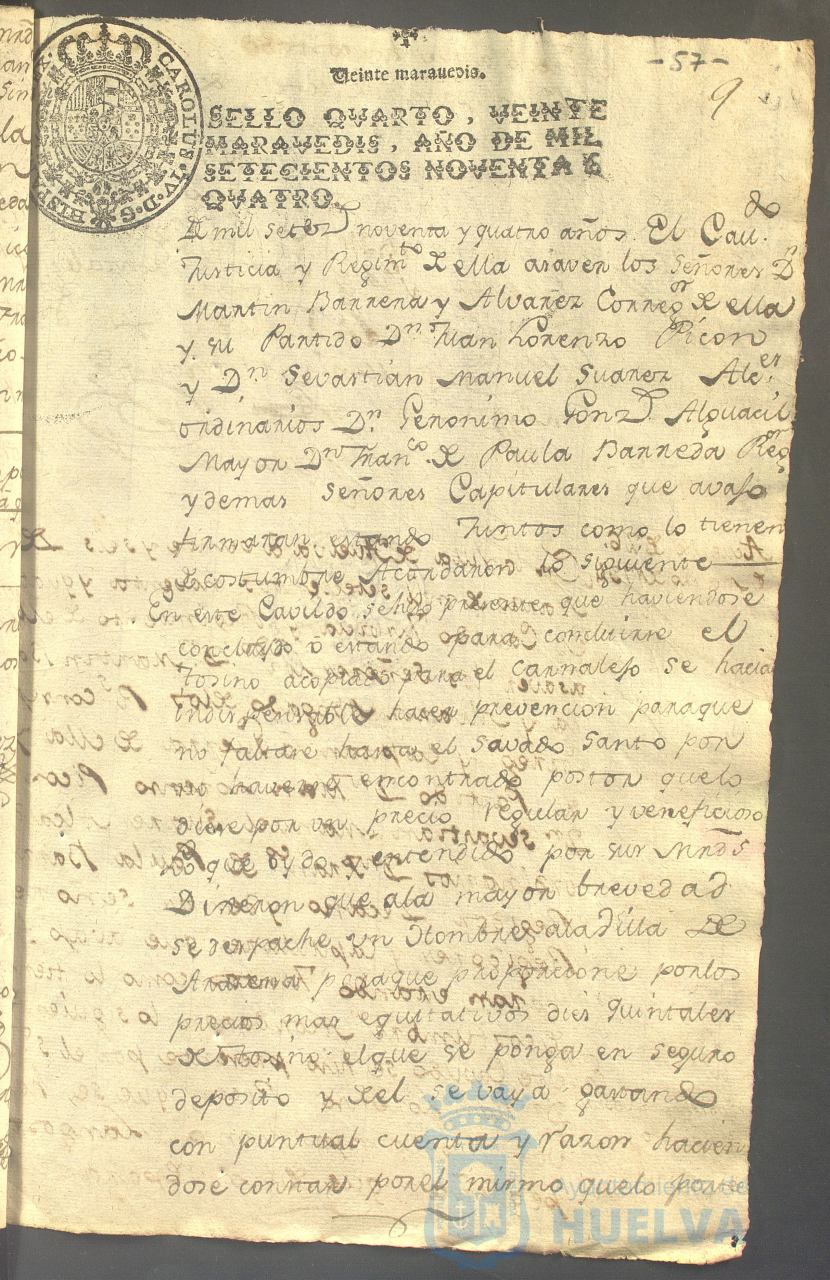 -57-
9
Veinte maravedis.
SELLO QVARTO, VEINTE
MARAVEDIS, AÑO DE MIL
SETECIENTOS NOVENTA Y
QVATRO.
CAROLUS·IV·D·G·HISPA
De mil setez.s noventa y quatro años. El Cav.do
Justicia y Regim.to de ella asaver los Señores D.n
Martin Barrena y Alvarez Correg.or de ella
y su Partido D.n Juan Lorenzo Picon
y D.n Sevastian Manuel Suarez Alc.es
ordinarios D.n Geronimo Gonz. Alguacil
Mayor D.n Fran.co de Paula Barreda Reg.or
y demas Señores Capitulares que avajo
firmaran estando Juntos como lo tienen
de costumbre Acordaron lo siguiente
En este Cavildo se hizo presente que haviendose
concluido ō estando para concluirse el
tosino acopiado para el carnalejo se hacia
indispensable hacer prevencion paraque
no faltare hasta el Savado Santo por
no haverse encontrado postor quelo
diese por un precio regular y veneficioso
lo que oydo y entendido por sus Mrds
Dixeron que ala mayor brevedad
se despache un Hombre ala Villa de
Aracena paraque proporcione porlos
precios mas equitativos dies quintales
de tosino elque se ponga en seguro
deposito y del se vaya gastando
con puntual cuenta y razon hacien
dose constar porel mismo quelo
Ayuntamiento de
HUELVA